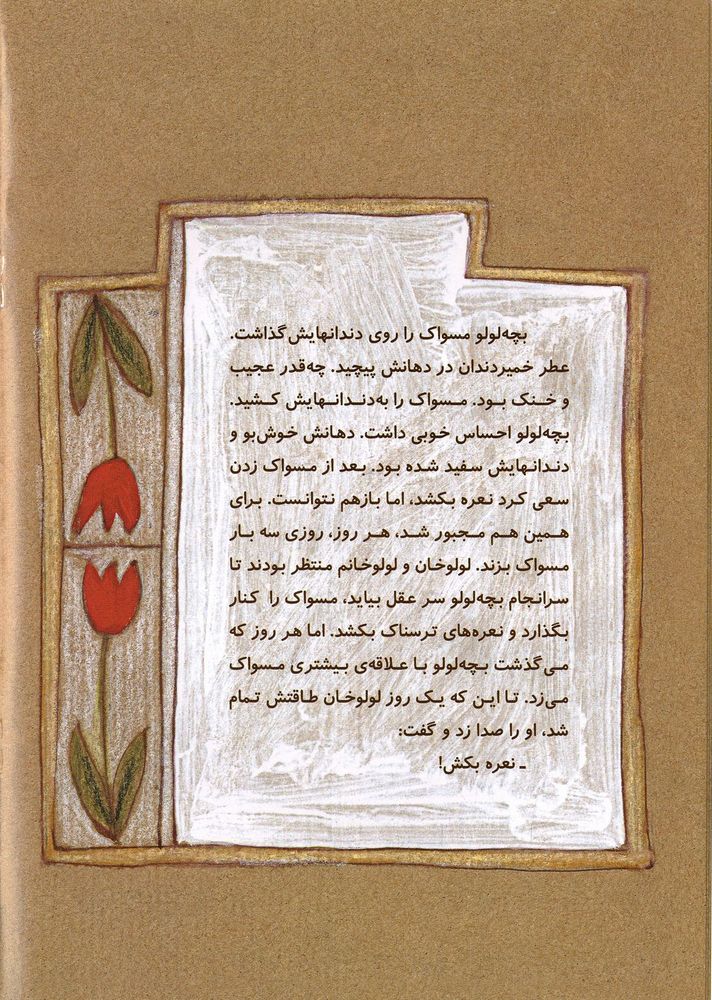 بچه‌لولو مسواک را روی دندانهایش گذاشت.
عطر خمیردندان در دهانش پیچید. چه‌قدر عجیب
و خنک بود. مسواک را به‌دندانهایش کشید.
بچه‌لولو احساس خوبی داشت. دهانش خوش‌بو و
دندانهایش سفید شده بود. بعد از مسواک زدن
سعی کرد نعره بکشد، اما بازهم نتوانست. برای
همین هم مجبور شد، هر روز، روزی سه بار
مسواک بزند. لولوخان و لولوخانم منتظر بودند تا
سرانجام بچه‌لولو سر عقل بیاید، مسواک را کنار
بگذارد و نعره‌های ترسناک بکشد. اما هر روز که
می‌گذشت بچه‌لولو با علاقه‌ی بیشتری مسواک
می‌زد. تا این که یک روز لولوخان طاقتش تمام
شد، او را صدا زد و گفت:
ـ نعره بکش!